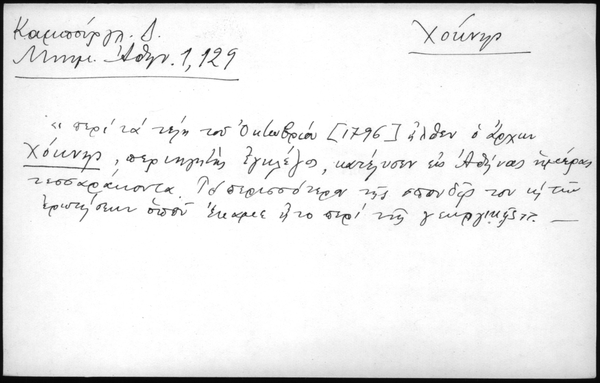 Καμπούργλ. Δ.
Μνημ. Ἀθην. 1, 129
Χόκινς
"περὶ τὰ τέλη τοῦ Ὀκτωβρίου [1796] ἦλθεν ὁ ἄρχων
Χόκινς, περιηγητὴς ἐγκλέζος, κατέλυσεν εἰς Ἀθήνας ἡμέρας
τεσσαράκοντα. Τὸ περισσότερον τῆς σπουδῆς του κ τῶν
ἐρωτήσεων ὁποῦ ἔκαμε ἦτο περὶ τῆς γεωργικῆς". —